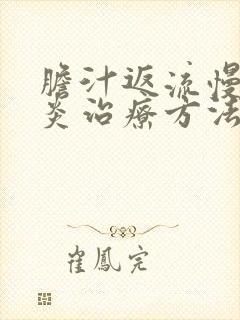 膽汁返流慢
炎治療方法
崔鳳完